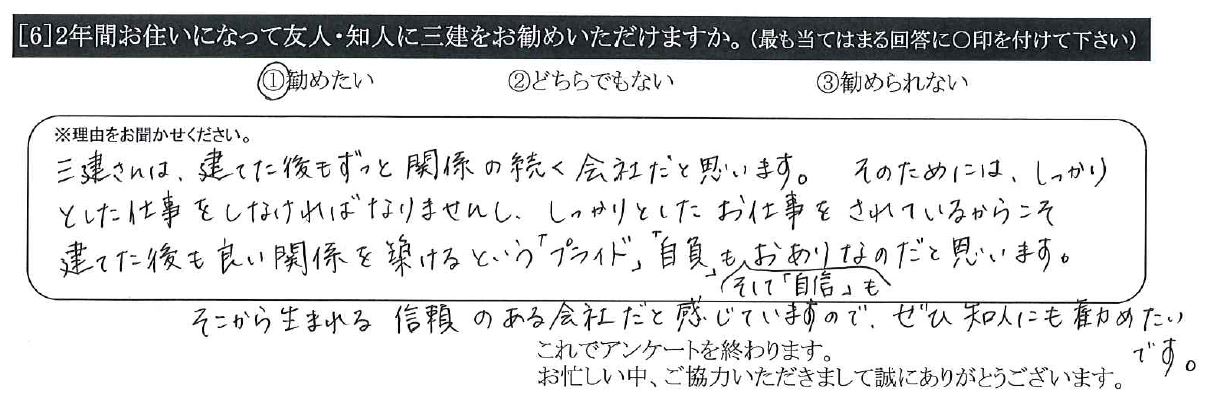 [6]2年間お住いになって友人・知人に三建をお勧めいただけますか。(最も当てはまる回答に○印を付けて下さい)
①勧めたい ②どちらでもない ③勧められない
※理由をお聞かせください。
三建さんは、建てた後もずっと関係の続く会社だと思います。 そのためには、しっかり
とした仕事をしなければなりませんし、しっかりとしたお仕事をされているからこそ
建てた後も良い関係を築けるという「プライド」「自負」もおありなのだと思います。
そして「自信」も
そこから生まれる信頼のある会社だと感じていますので、ぜひ知人にも勧めたい
です。
これでアンケートを終わります。
お忙しい中、ご協力いただきまして誠にありがとうございます。